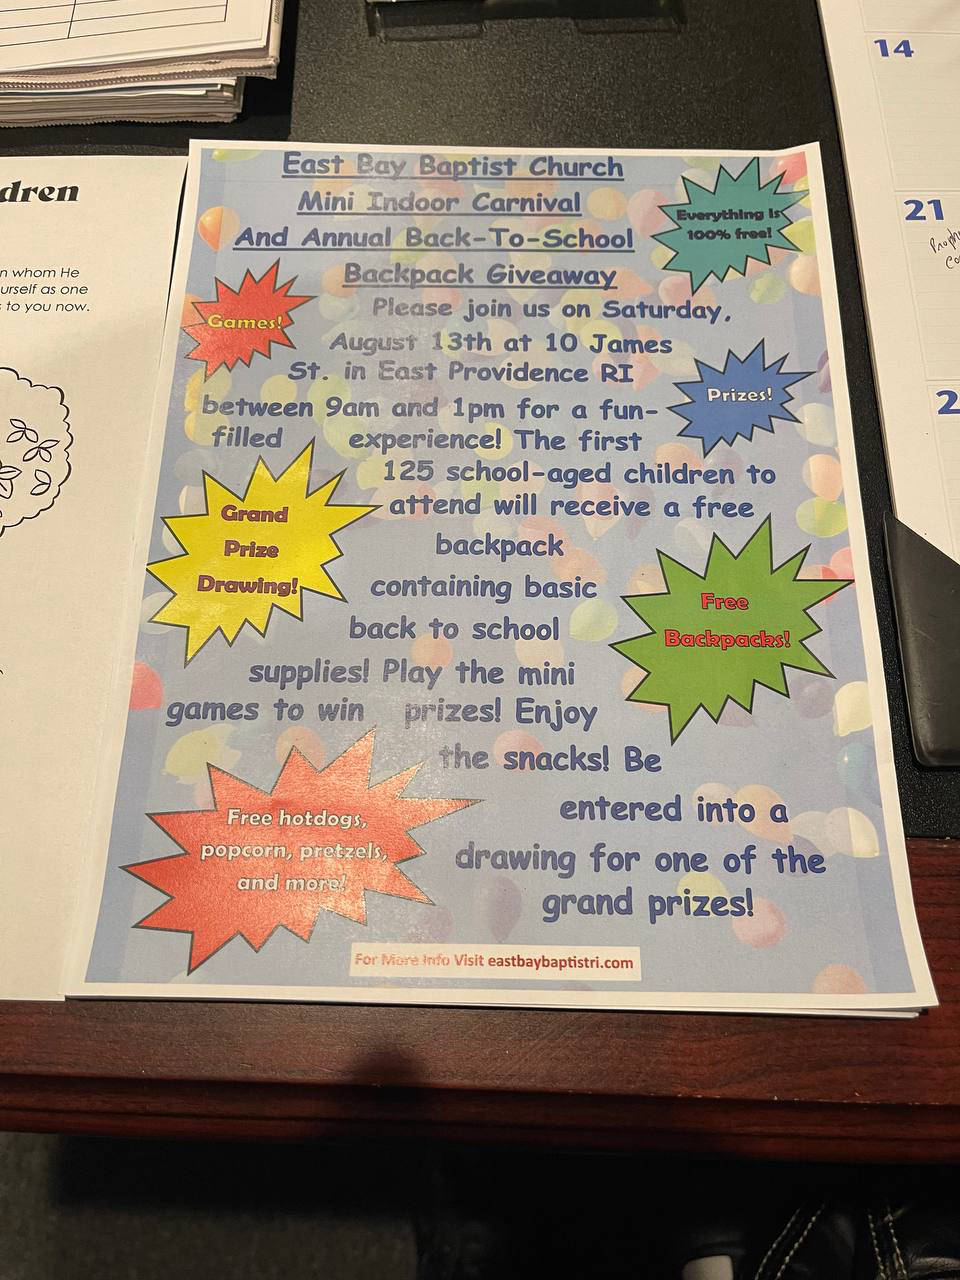 East Bay Baptist Church
Mini Indoor Carnival
And Annual Back-To-School
Backpack Giveaway
Everything is
100% free!
Games!
Please join us on Saturday,
August 13th at 10 James
St. in East Providence RI
between 9am and 1pm for a fun-
filled experience! The first
Prizes!
125 school-aged children to
attend will receive a free
backpack
containing basic
back to school
supplies! Play the mini
games to win prizes! Enjoy
the snacks! Be
entered into a
drawing for one of the
grand prizes!
Grand
Prize
Drawing!
Free
Backpacks!
Free hotdogs,
popcorn, pretzels,
and more!
For More Info Visit eastbaybaptistri.com
dren
n whom He
urself as one
s to you now.
14
21
2